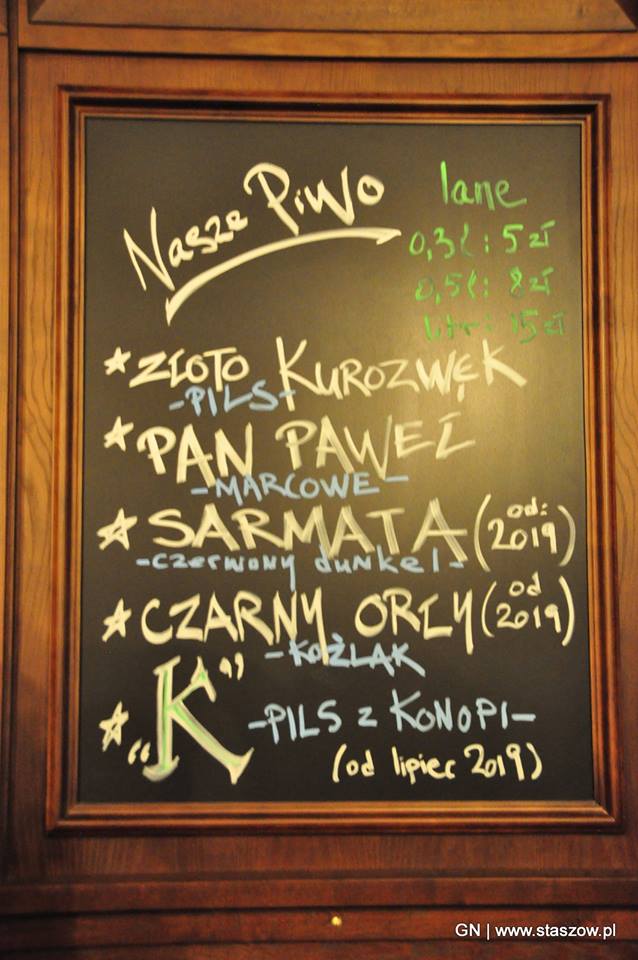 Nasze Piwo
lane
0,3l: 5 zł
0,5l: 8 zł
litr: 15 zł
ZŁOTO KUROZWĘK
-PILS-
PAN PAWEŁ
-MARCOWE-
SARMATA (od: 2019)
-czerwony dunkel-
CZARNY ORŁY (od 2019)
-KOŹLAK
"K" -PILS z KONOPI-
(od lipiec 2019)
GN | www.staszow.pl